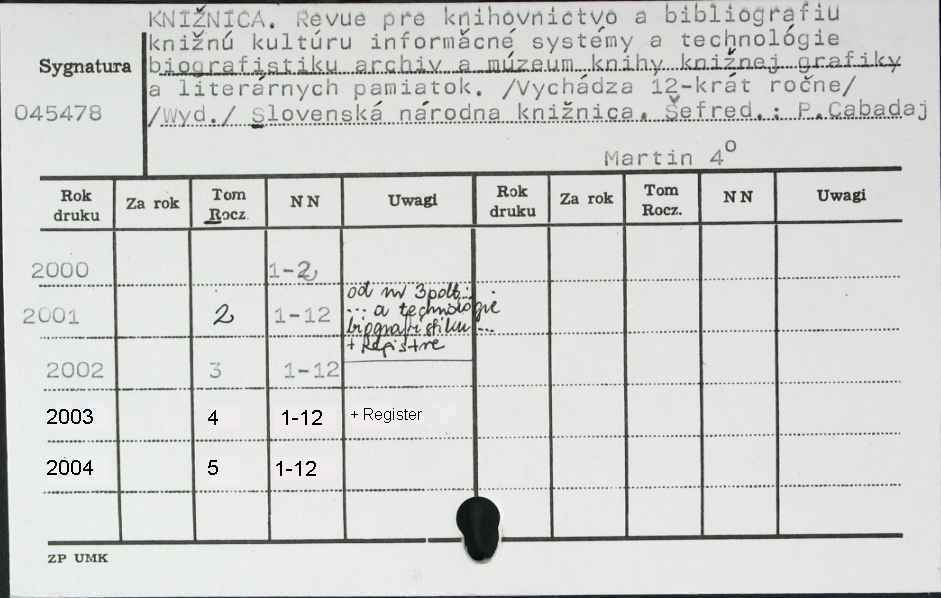 KNIŽNICA. Revue pre knihovníctvo a bibliografiu
knižnú kultúru informačné systémy a technológie
biografistiku archiv a múzeum knihy knižnej grafiky
Sygnatura
a literárnych pamiatok. /Vychádza 12-krát ročne/
045478
/Wyd./ Slovenská národna knižnica. Šefred.: P.Cabadaj
Martin 4°
Rok druku Za rok Tom Rocz. NN Uwagi Rok druku Za rok Tom Rocz. NN Uwagi
2000 1-2
2001 2 1-12 od nr 3 podt...
... a technologie
biografistiku ...
+ Registre
2002 3 1-12
2003 4 1-12 + Register
2004 5 1-12
ZP UMK